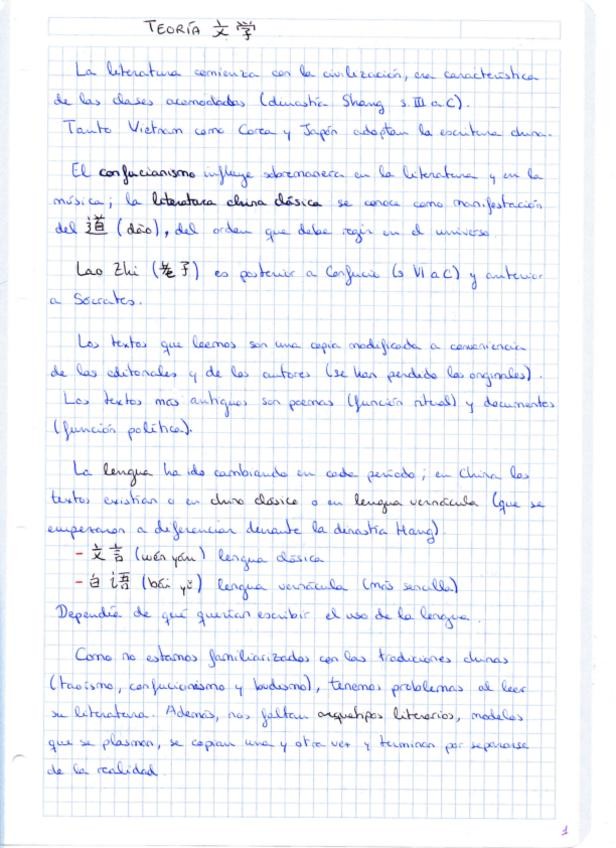 TEORÍA 文学
La literatura comienza con la civilización, era característica
de las clases acomodadas (dinastía Shang s. III a C).
Tanto Vietnam como Corea y Japón adoptan la escritura china.
El confucianismo influye sobremanera en la literatura y en la
música; la literatura china clásica se conoce como manifestación
del 道 (dào), del orden que debe regir en el universo.
Lao Zhi (老子) es posterior a Confucio (s VI a C) y anterior
a Sócrates.
Los textos que leemos son una copia modificada a conveniencia
de las editoriales y de los autores (se han perdido los originales).
Los textos más antiguos son poemas (función ritual) y documentos
(función política).
La lengua ha ido cambiando en cada periodo; en China los
textos existían o en chino clásico o en lengua vernácula (que se
empezaron a diferenciar durante la dinastía Hang).
- 文言 (wén yán) lengua clásica
- 白语 (bái yǔ) lengua vernácula (más sencilla)
Dependía de qué querían escribir el uso de la lengua.
Como no estamos familiarizados con las tradiciones chinas
(taoísmo, confucionismo y budismo), tenemos problemas al leer
su literatura. Además, nos faltan arquetipos literarios, modelos
que se plasman, se copian una y otra vez y terminan por separarse
de la realidad.
1